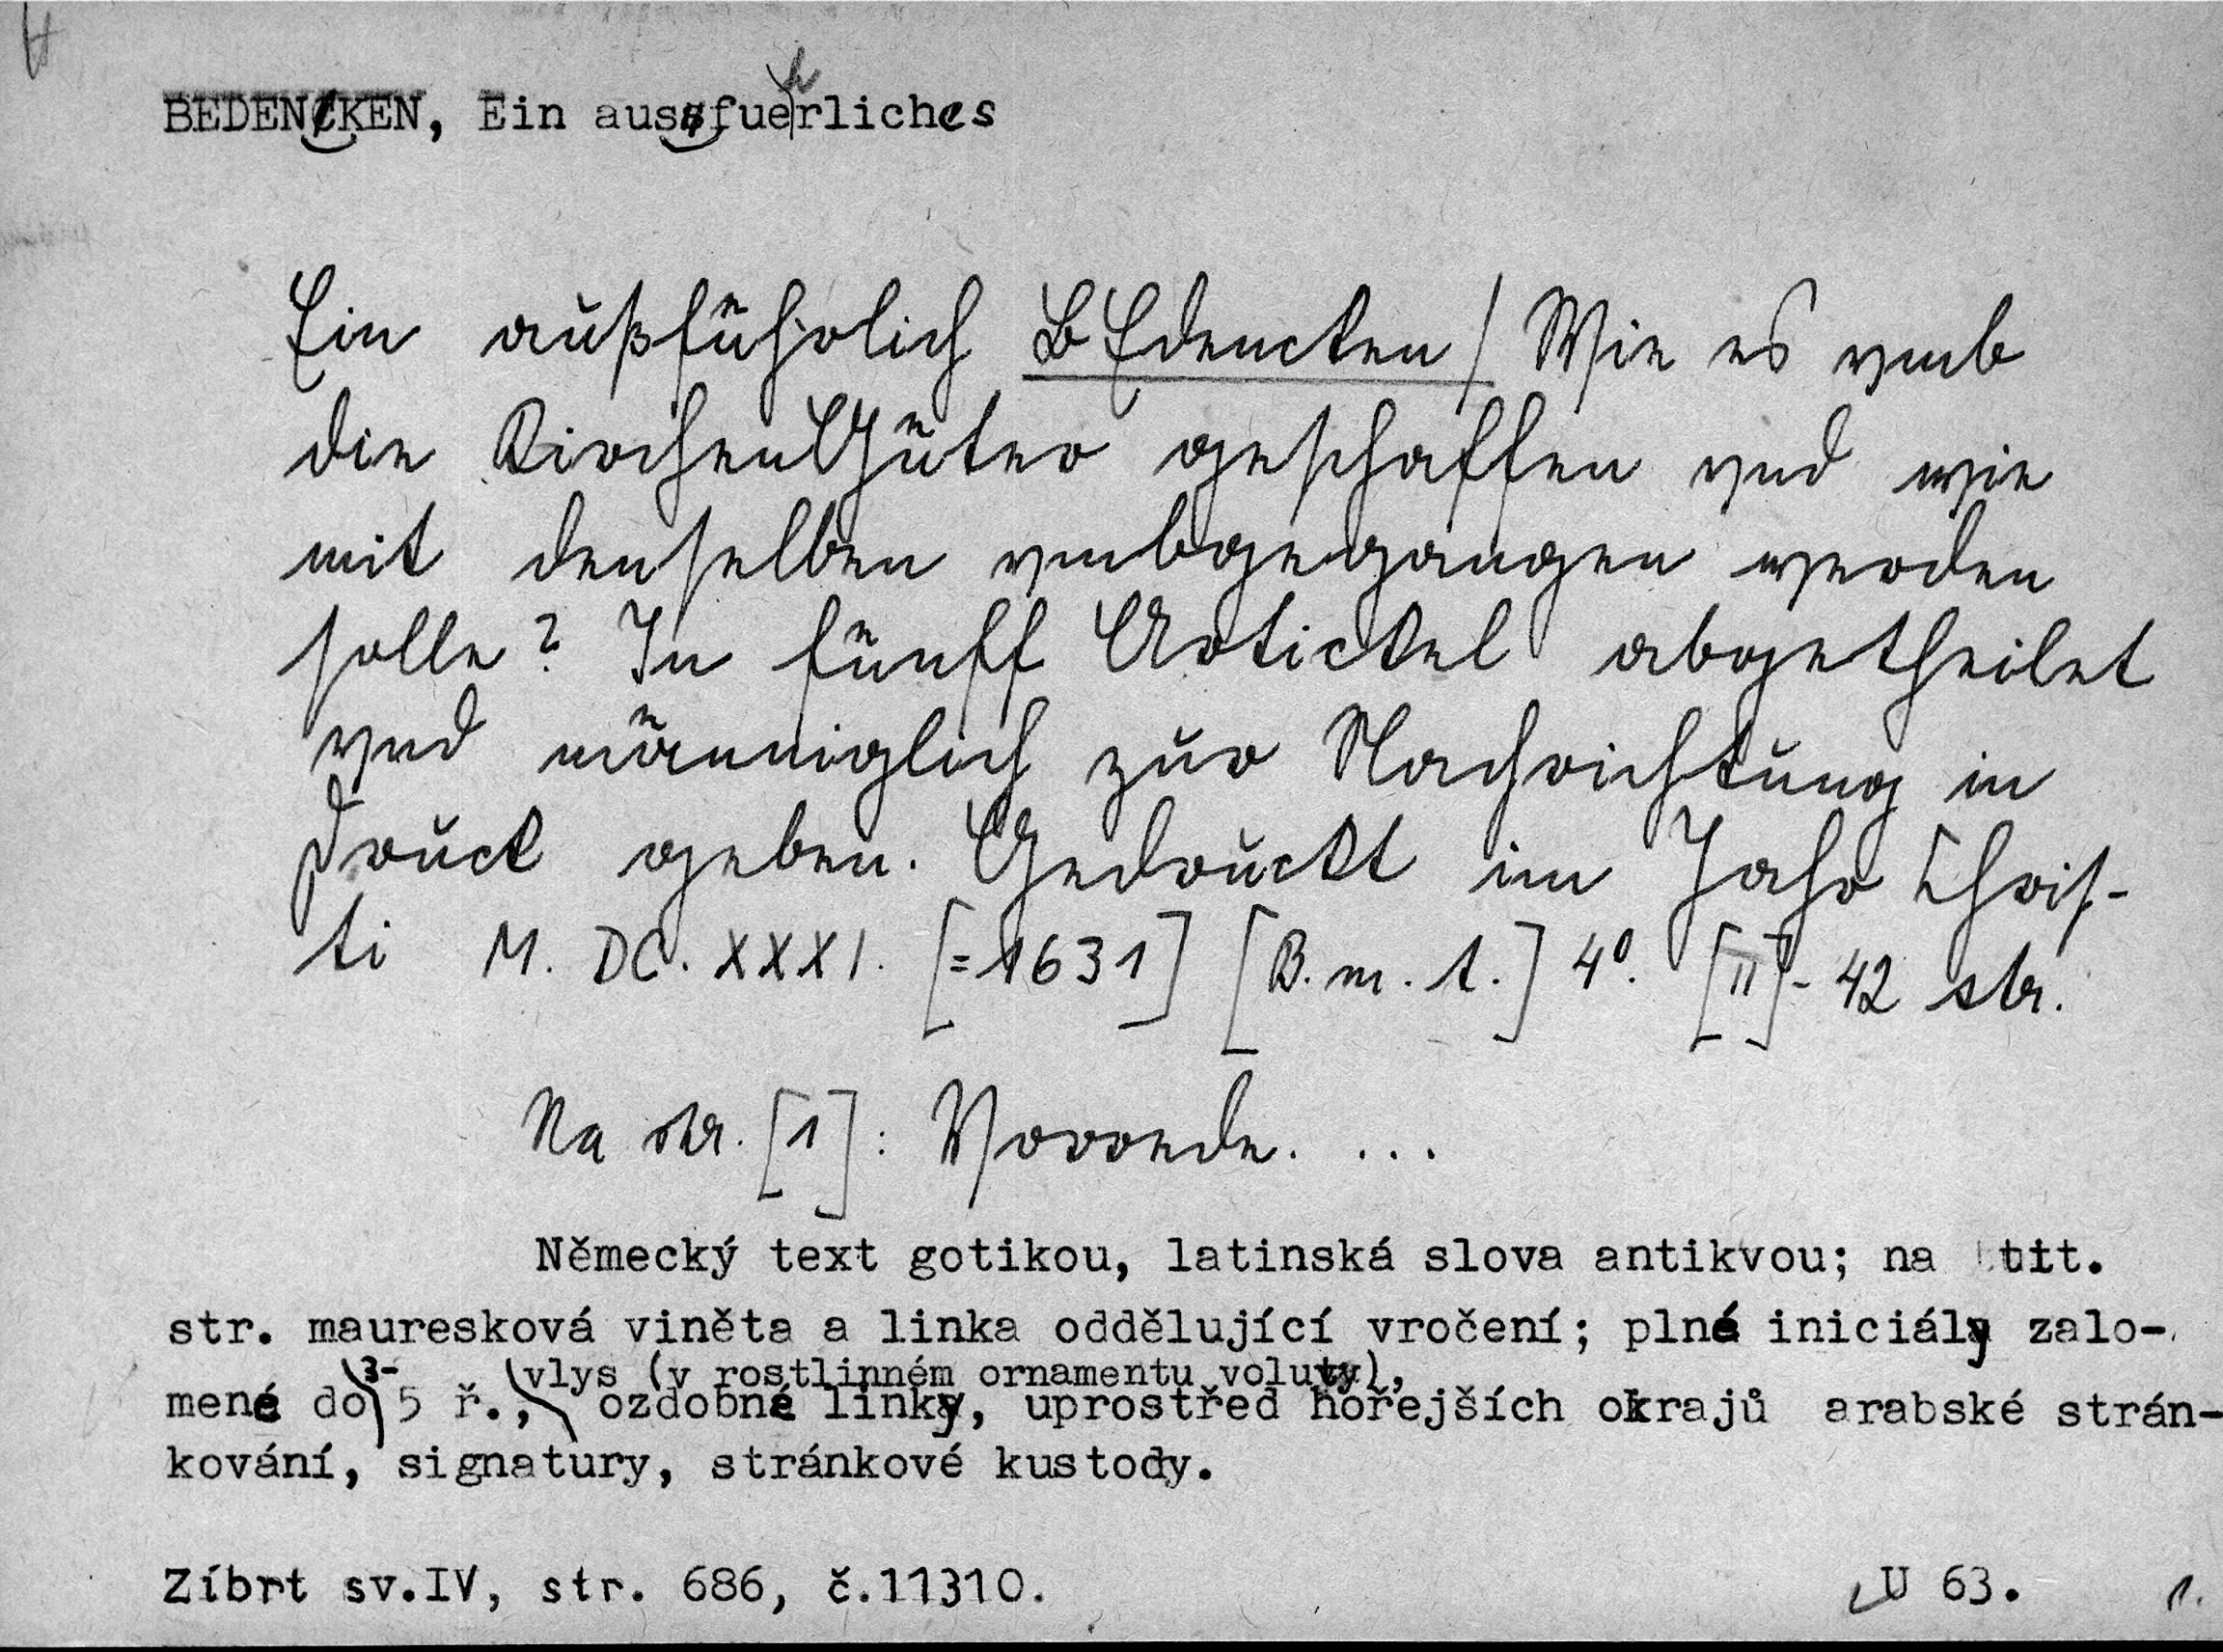 BEDENCKEN, Ein ausfuehrliches
Ein außführlich BEdencken / Wie es vmb
die KirchenGüter geschaffen vnd wie
mit denselben vmbgegangen werden
solle? In fünff Artickel abgetheilet
vnd männiglich zur Nachrichtung in
Druck geben. Gedruckt im Jahr Chris-
ti M. DC. XXXI. [=1631] [B. m. t.] 4º. [II]- 42 str.
Na str. [1]: Vorrede. ...
Německý text gotikou, latinská slova antikvou; na tit.
str. mauresková viněta a linka oddělující vročení; plné iniciály zalo-
mené do 3-5 ř., vlys (v rostlinném ornamentu voluty), ozdobné linky, uprostřed hořejších okrajů arabské strán-
kování, signatury, stránkové kustody.
Zíbrt sv.IV, str. 686, č.11310. U 63. 1.